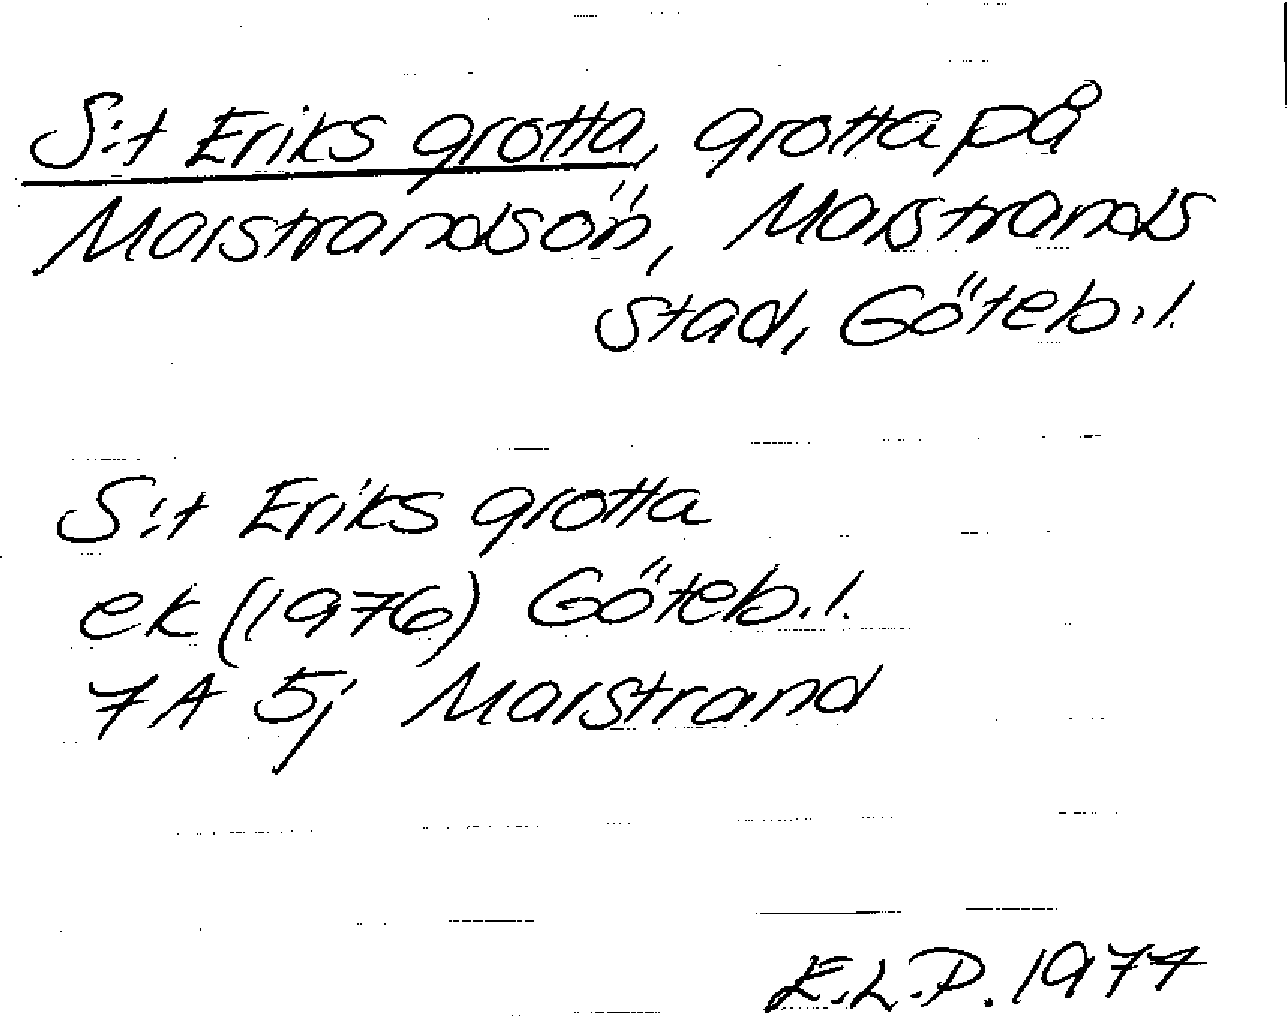 S:t Eriks grotta, grotta på
Marstrandsön, Marstrands
stad, Göteb. l.
S:t Eriks grotta
ek (1976) Göteb. l.
7A 5j Marstrand
E.L.P. 1977